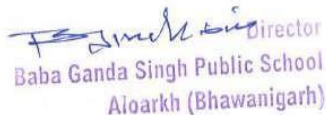 Director
Baba Ganda Singh Public School
Aloarkh (Bhawanigarh)